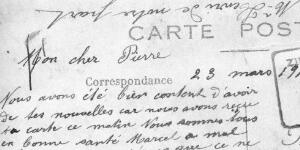 de notre part
CARTE POS
Mon cher Pierre
Correspondance
23 mars 19
Nous avons été bien content d'avoir
de tes nouvelles car nous avons reçu
ta carte ce matin Nous sommes tous
en bonne santé Marcel a mal
que ce ne